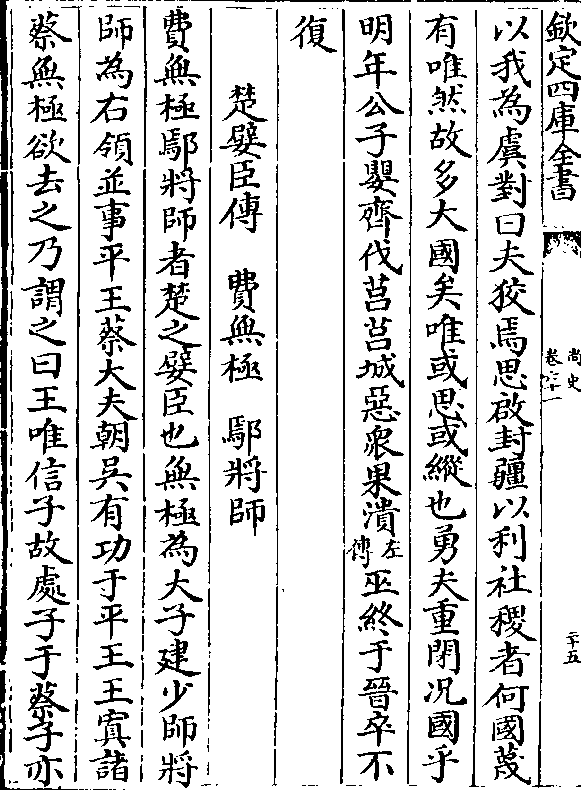 欽定四庫全書
尚史
卷三十一
二十五
以我為虞對曰夫狡焉思啟封疆以利社稷者何國蔑
有唯然故多大國矣唯或思或縱也勇夫重閉况國乎
明年公子嬰齊伐莒莒城惡衆果潰左傳巫終于晉卒不
復
楚嬖臣傳 費無極 鄢將師
費無極鄢將師者楚之嬖臣也無極為大子建少師將
師為右領並事平王蔡大夫朝吳有功于平王王寘諸
蔡無極欲去之乃謂之曰王唯信子故處子于蔡子亦